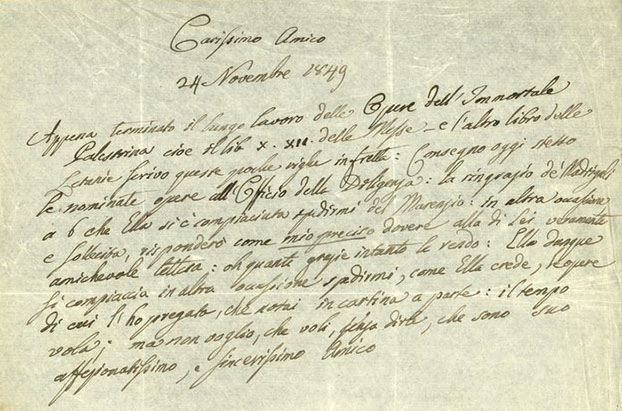 Carissimo Amico
24 Novembre 1849
Appena terminato il lungo lavoro delle Opere dell'Immortale
Palestrina cioè il lib X. XII. delle Messe - e l'altro libro delle
Letanie scrivo queste poche righe in fretta: Consegno oggi stesso
le nominate opere all'Officio della Diligenza: la ringrazio de' Madrigali
a 6 che Ella si è compiaciuta spedirmi del Marenzio: in altra occasione
e sollecita, risponderò come mio preciso dovere alla di Lei veramente
amichevole lettera: oh quante grazie intanto le rendo: Ella dunque
si compiaccia in altra occasione spedirmi, come Ella crede, le opere
di cui l'ho pregata, che notai in cartina a parte: il tempo
vola; ma non voglio, che voli, senza dirle, che sono suo
affezionatissimo, e sincerissimo Amico